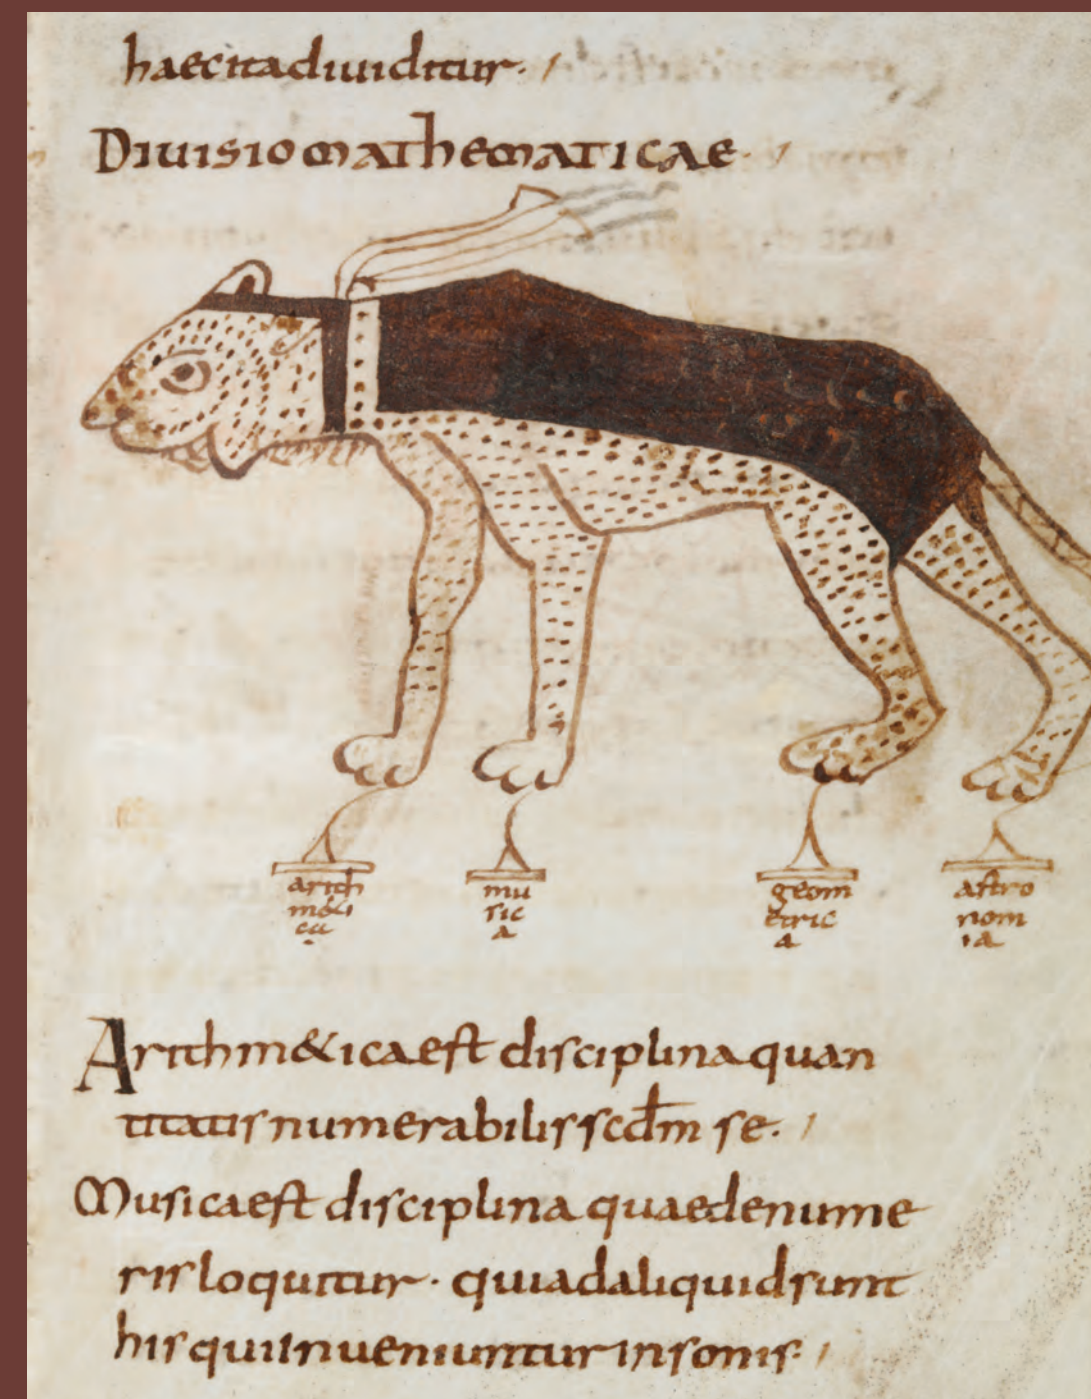 haec ita diuiditur·
Diuisio mathematicae·
arith
m&i
ca
mu
sic
a
geom
etric
a
astro
nom
ia
Arithm&ica est disciplina quan
titatis numerabilis scdm se·
Musica est disciplina quae de nume
ris loquitur· qui ad aliquid sunt
his qui inueniuntur in sonis·